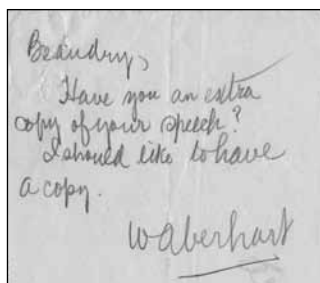 Beaudry,
Have you an extra
copy of your speech?
I should like to have
a copy.
W Aberhart